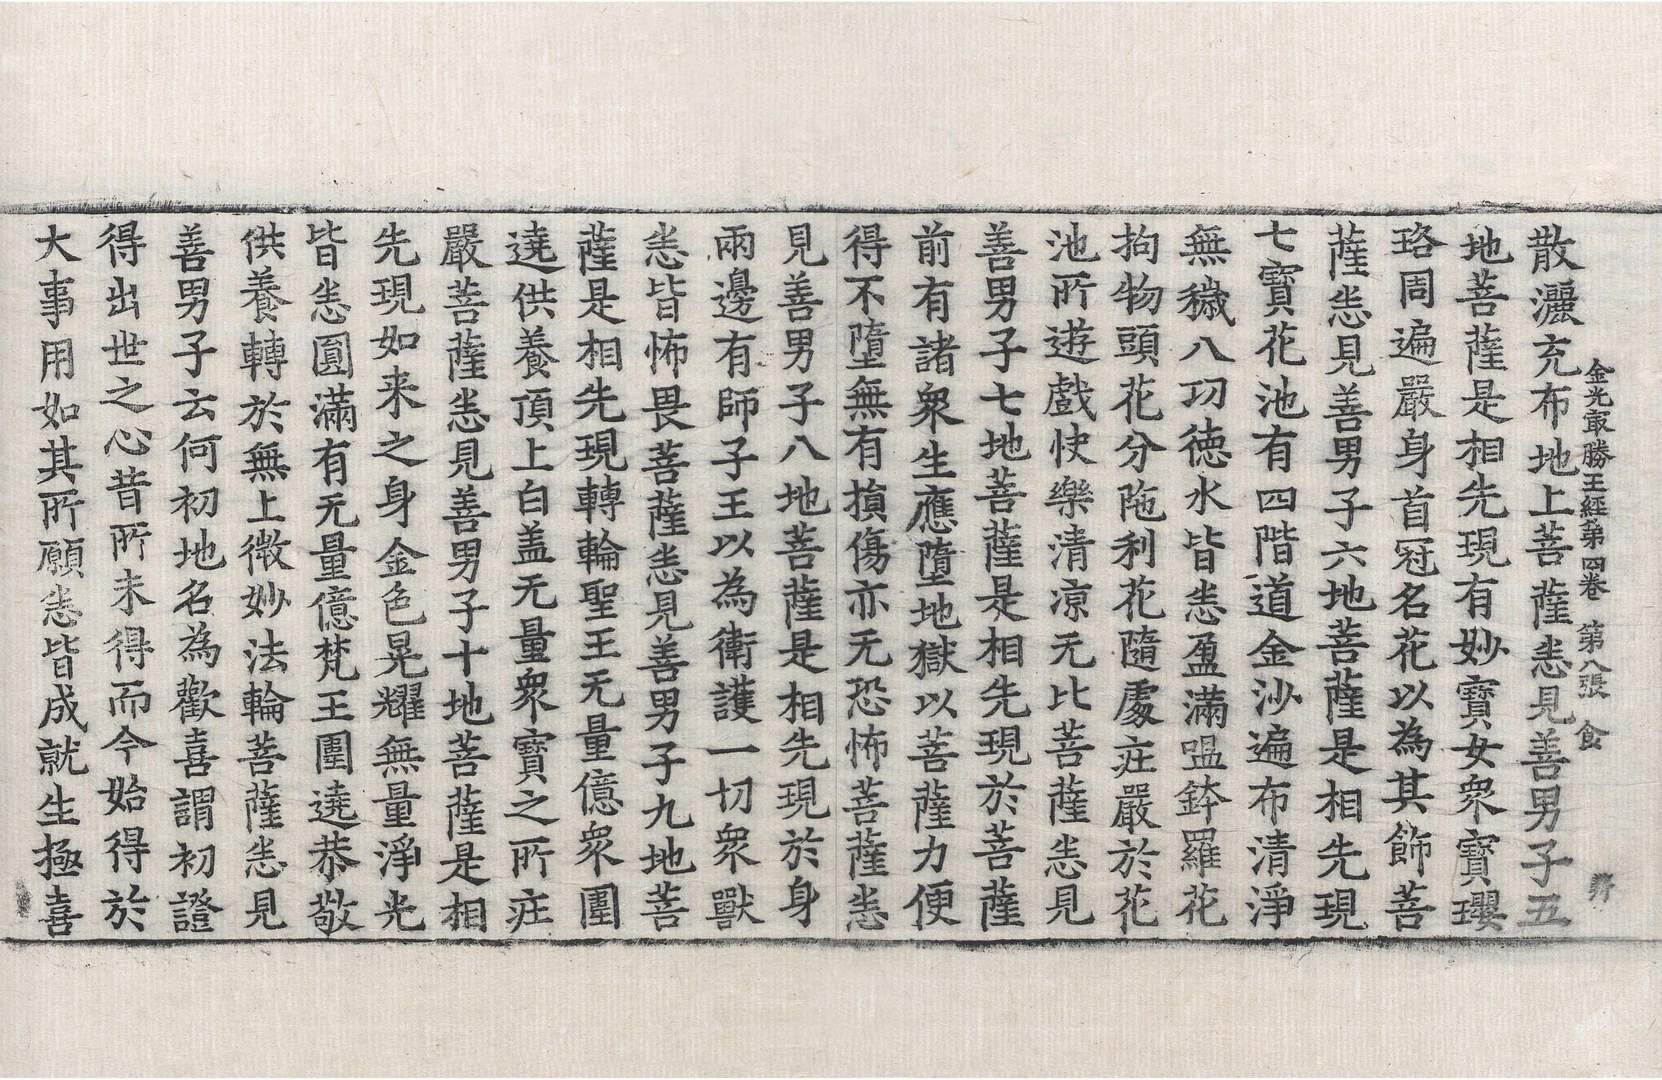 金光㝡勝王經第四卷 第八張 食
散灑充布地上菩薩悉見善男子五
地菩薩是相先現有妙寶女衆寶瓔
珞周遍嚴身首冠名花以為其飾菩
薩悉見善男子六地菩薩是相先現
七寶花池有四階道金沙遍布清淨
無穢八功德水皆悉盈滿嗢鉢羅花
拘物頭花分陁利花隨處庄嚴於花
池所遊戲快樂清凉无比菩薩悉見
善男子七地菩薩是相先現於菩薩
前有諸衆生應墮地獄以菩薩力便
得不墮無有損傷亦无恐怖菩薩悉
見善男子八地菩薩是相先現於身
兩邊有師子王以為衛護一切衆獸
悉皆怖畏菩薩悉見善男子九地菩
薩是相先現轉輪聖王无量億衆圍
遶供養頂上白盖无量衆寶之所庄
嚴菩薩悉見善男子十地菩薩是相
先現如来之身金色晃耀無量淨光
皆悉圓滿有无量億梵王圍遶恭敬
供養轉於無上微妙法輪菩薩悉見
善男子云何初地名為歡喜謂初證
得出世之心昔所未得而今始得於
大事用如其所願悉皆成就生極喜